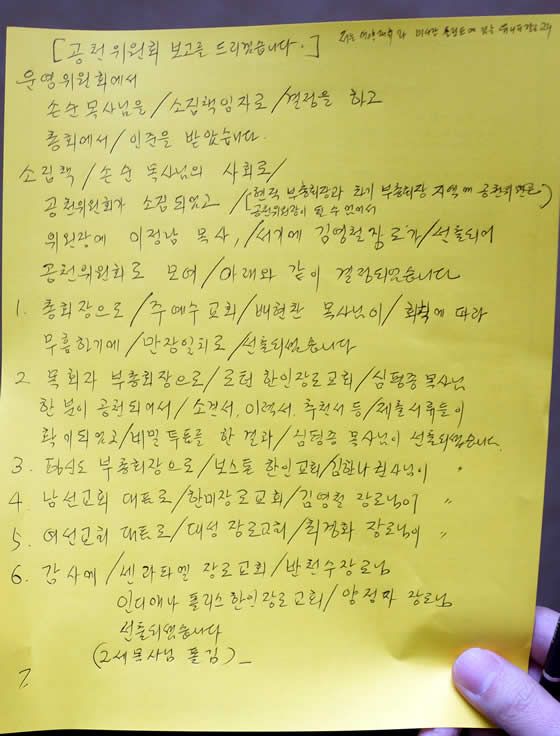 [공천위원회 보고를 드리겠습니다.]
운영위원회에서
손순 목사님을/소집책임자로/결정을 하고
총회에서/인준을 받았습니다.
소집책/손순 목사님의 사회로/
공천위원회가 소집되었고/(현직 부총회장과 차기 부총회장 지역에 공천위원은)
공천위원장이 될 수 없어서
위원장에 이정남 목사,/서기에 김영철장로가/선출되어
공천위원회로 모여/아래와 같이 결정되었습니다
1. 총회장으로/주예수교회/배현찬 목사님이/회칙에 따라
무흠하기에/만장일치로/선출되셨습니다
2. 목회자 부총회장으로/로턴 한인장로교회/심평종 목사님
한 분이 공천되어서/소견서, 이력서, 추천서 등/제출서류들이
확인되었고/비밀투표를 한 결과/심평종 목사님이 선출되셨습니다.
3. 평신도 부총회장으로/보스톤 한인교회/김한나 권사님이 〃
4. 남선교회 대표로/한미장로교회/김영철 장로님이 〃
5. 여선교회 대표로/대성 장로교회/최경화 장로님이 〃
6. 감사에/센라파엘 장로교회/반현수장로님
인디애나 폴리스 한인장로교회/양정자 장로님
선출되셨습니다
(2세목사님 통김)_
7.